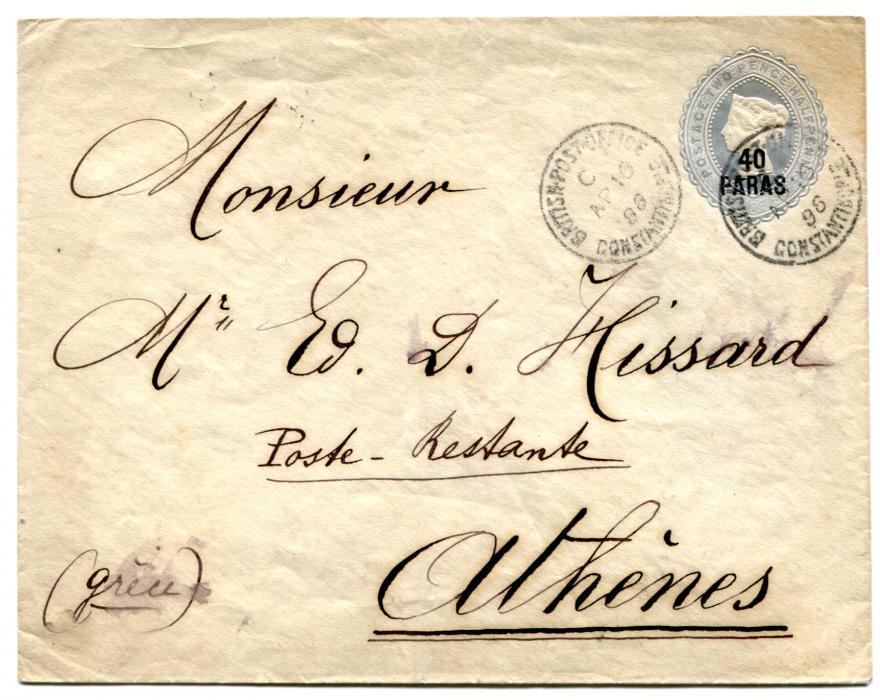 POSTAGE TWO PENCE HALFPENNY
40
PARAS
BRITISH·POST·OFFICE
C
AP 16
96
CONSTANTINOPLE
BRITISH
96
CONSTANTINOPLE
Monsieur
Mr Ed. D. Hissard
Poste-Restante
Athènes
(grèce)